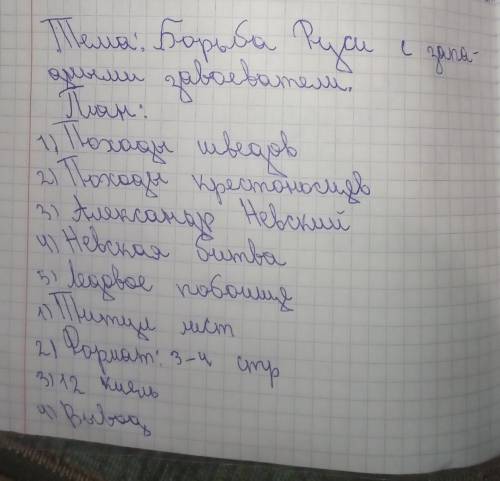 Тема: Борьба Руси с запа-
дными завоевателями.
План:
1) Походы шведов
2) Походы крестоносцев
3) Александр Невский
4) Невская битва
5) Ледовое побоище
1) Титул лист
2) Формат: 3-4 стр
3) 12 кегль
4) Вывод